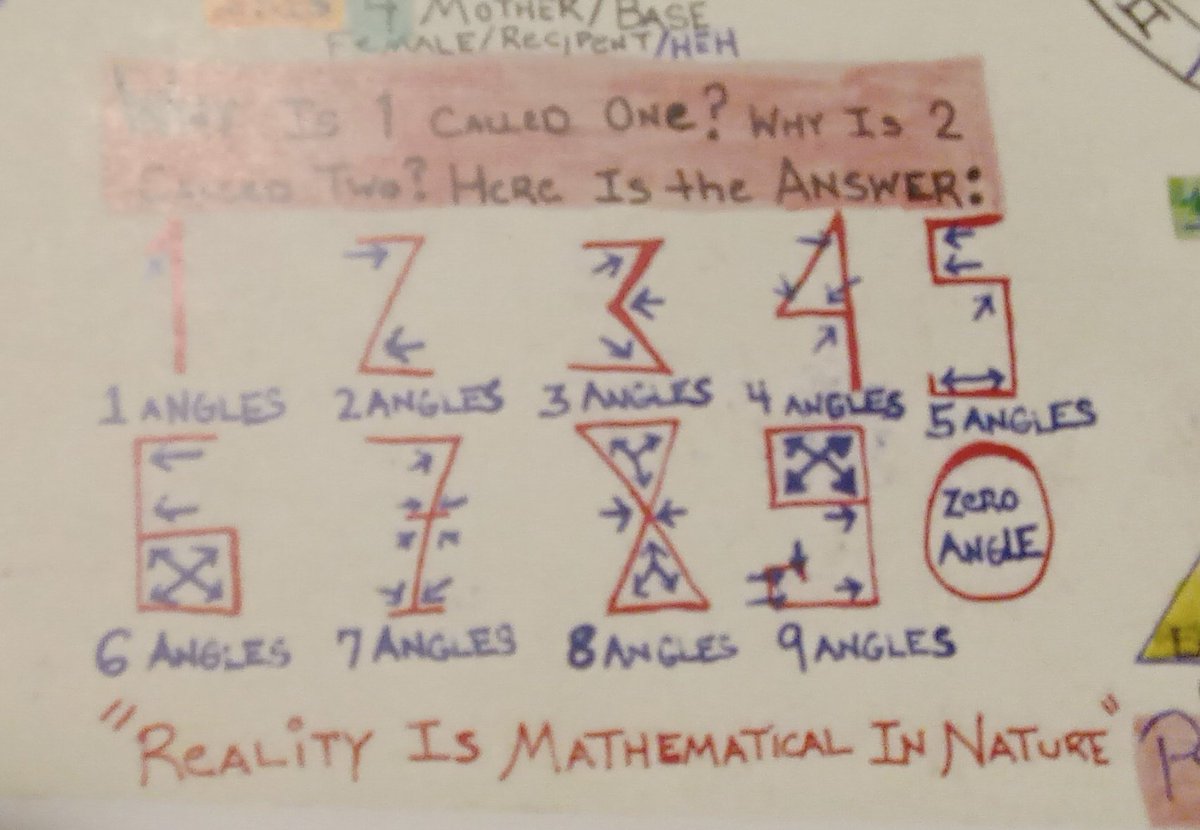 4 MOTHER/BASE
FEMALE/RECIPENT/HEH
WHY IS 1 CALLED ONE? WHY IS 2
CALLED TWO? HERE IS the ANSWER:
1 ANGLES 2 ANGLES 3 ANGLES 4 ANGLES 5 ANGLES
ZERO
ANGLE
6 ANGLES 7 ANGLES 8 ANGLES 9 ANGLES
"REALITY IS MATHEMATICAL IN NATURE"